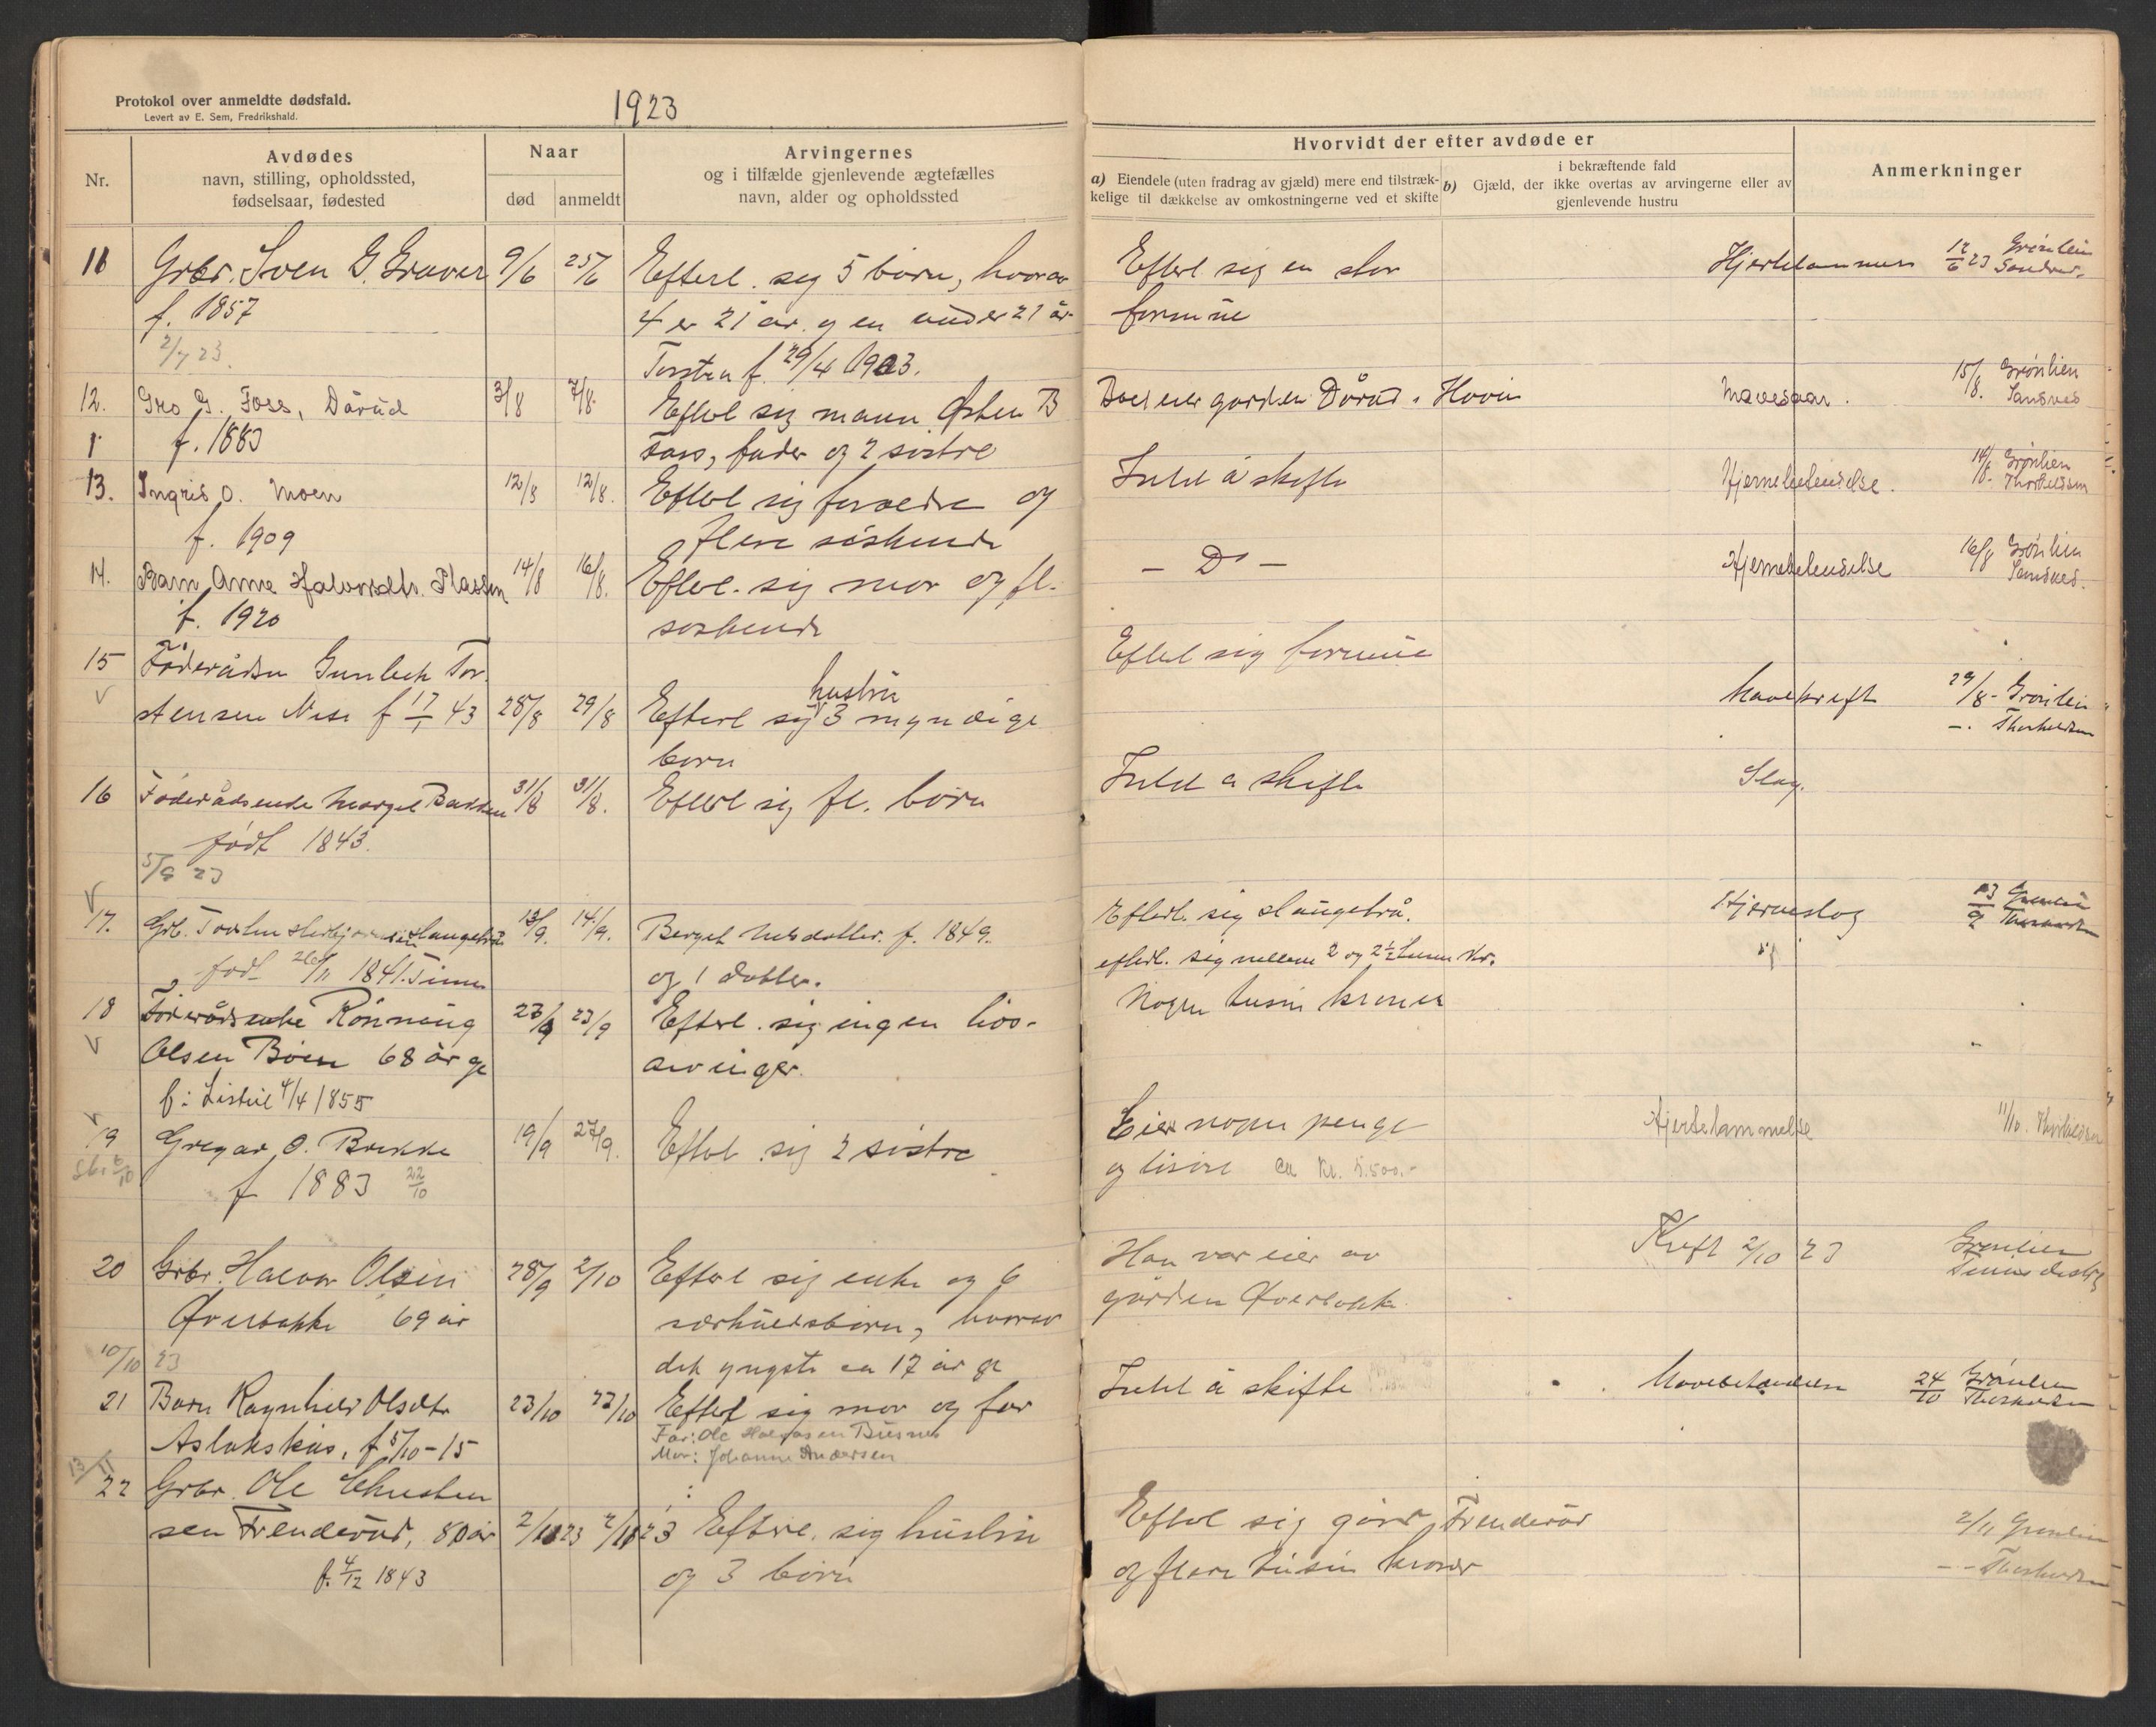 Protokol over anmeldte dødsfald.
Levert av E. Sem, Fredrikshald.
1923
Nr.
Avdødes
navn, stilling, opholdssted,
fødselsaar, fødested
Naar
død
anmeldt
Arvingernes
og i tilfælde gjenlevende ægtefælles
navn, alder og opholdssted
Hvorvidt der efter avdøde er
a) Eiendele (uten fradrag av gjæld) mere end tilstræk-
kelige til dækkelse av omkostningerne ved et skifte
i bekræftende fald
b) Gjæld, der ikke overtas av arvingerne eller av
gjenlevende hustru
Anmerkninger
11 Grbr. Sven G. Graver 9/6 25/6 Efterl. sig 5 børn, hvorav Efterl sig en stor 12/6 23 Grønlien
f. 1857 4 er 21 år og en under 21 år formue
2/7 23. Torsten f. 29/4 1903.
12. Gro G. Foss, Dårud 3/8 7/8 Efterl sig mann Østen B Boet eier garden Dårud i Hovin Mavesaar. 15/8. Grønlien
f. 1883 Foss, fader og 2 søstre Sandnes
13. Ingrid O. Moen 12/8 12/8. Efterl sig forældre og Intet å skifte Hjernebetendelse. 14/8. Grønlien
f. 1909 flere søskende Thorkildsen
14. Barn Anne Halvorsdtr. Plassen 14/8 16/8. Efterl. sig mor og fl. – Do – Hjernebetendelse 16/8 Grønlien
f. 1920 søskende Sandnes.
15 Föderådsm Gunleik Tor- Efterl sig formue
stensen Nese f 17/1 43 28/8 29/8 Efterl sig hustru 3 myndige Mavekreft 29/8 - Grønlien
børn –. Thorkildsen
16 Föderådsenke Margit Bakken 31/8 31/8. Efterl sig fl. børn Intet å skifte Slag.
født 1843.
5/9 23
17. Grb. Torsten Herbjørnsen Slangebrå 13/9. 14/9. Berget Nilsdotter. f. 1849. Efterl. sig Slangebrå. Hjerneslag 23/9
født 26/11 1841. Tinn og 1 dotter. efterl. sig mellem 2 og 2½ tusen kr.
18 Föderådsenke Rönnaug 23/9 23/9 Efterl. sig ingen livs- Nogen tusin kroner
Olsen Böen 68 år gl arvinger.
f: Listul 4/4 1855
19 Gregar O. Brekke 19/9 27/9. Efterl sig 2 søstre Eier nogen penge Hjertelammelse 11/10. Thorkildsen
f 1883 22/10 og løsøre ca kr. 5.500.-
20 Grbr. Halvor Olsen 28/9 2/10 Efterl sig enke og 6 Han var eier av Kreft 2/10 23 Grønlien
Øverbakke 69 år særkuldsbørn, hvorav gården Øverbakke.
10/10 23 det yngste er 17 år gl
21 Barn Ragnhild Olsdtr 23/10 23/10 Efterl sig mor og far Intet å skifte Mavebetendelse 24/10 Grønlien
Aslakshus, f 5/10-15 Far: Ole Halvorsen Busnes Thorkildsen
Mor: Johanne Andersen
13/11
22 Grbr. Ole Christen
sen Frenderud, 80 år 2/11 23 2/11 23 Efterl. sig hustru Efterl sig gård Frenderud 2/11 Grønlien
f. 4/12 1843 og 3 børn og flere tusin kroner – - Thorkildsen